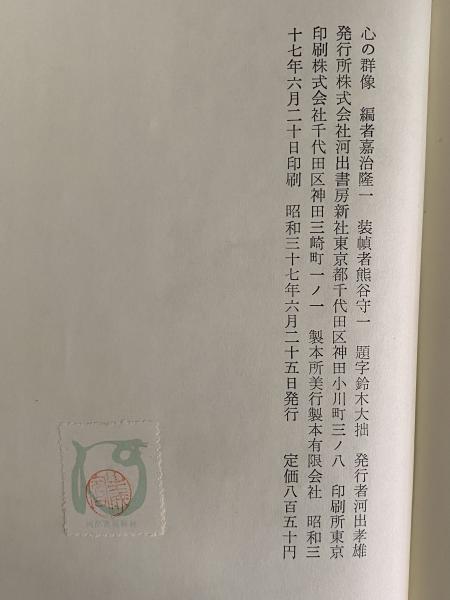 心の群像　編者嘉治隆一　装幀者熊谷守一　題字鈴木大拙　発行者河出孝雄
発行所株式会社河出書房新社東京都千代田区神田小川町三ノ八　印刷所東京
印刷株式会社千代田区神田三崎町一ノ一　製本所美行製本有限会社　昭和三
十七年六月二十日印刷　昭和三十七年六月二十五日発行　定価八百五十円